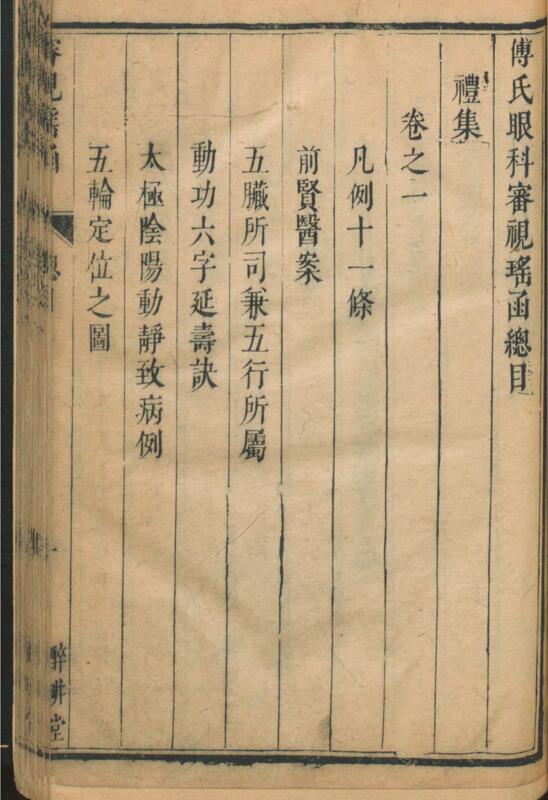 傅氏眼科審視瑤函總目
禮集
卷之一
凡例十一條
前賢醫案
五臟所司兼五行所屬
動功六字延壽訣
太極陰陽動靜致病例
五輪定位之圖
醉畊堂